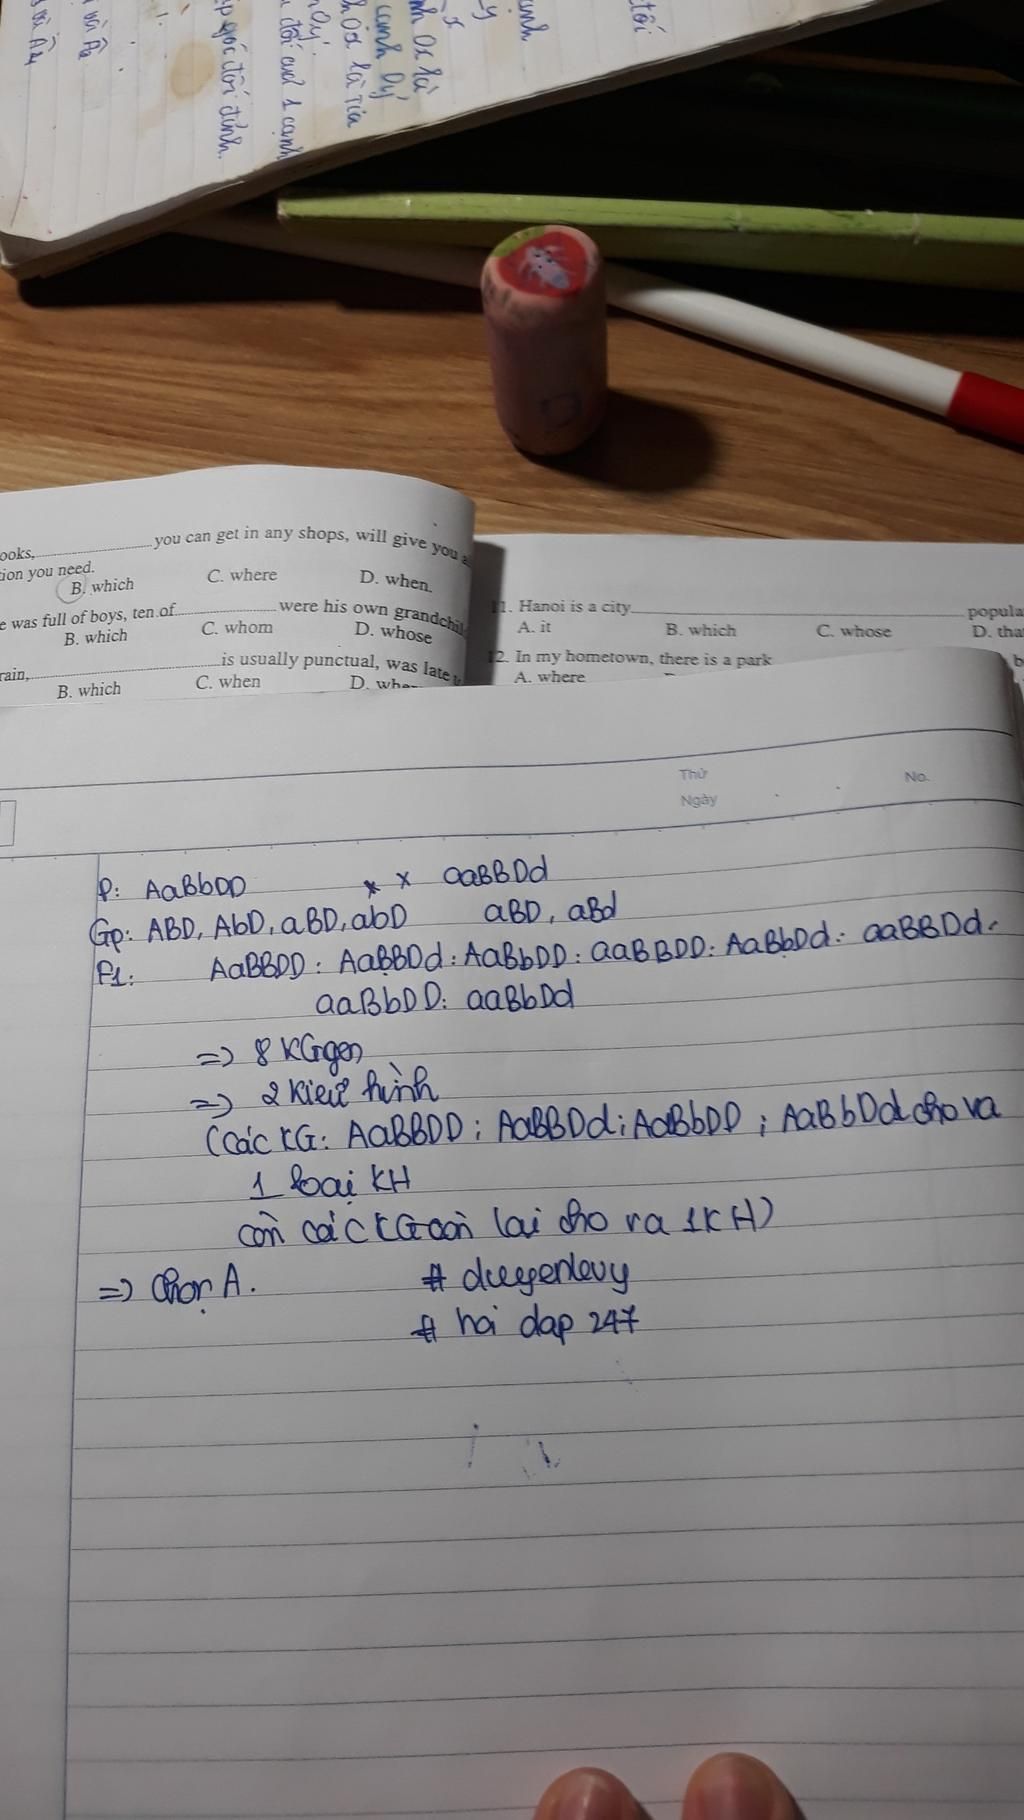 tối
cạnh
canh Oy
đối của 1 cạnh
góc đối đỉnh.
ooks, you can get in any shops, will give you a
tion you need.
B. which C. where D. when.
e was full of boys, ten of were his own grandchil
B. which C. whom D. whose
rain, is usually punctual, was late
B. which C. when D. whe
11. Hanoi is a city popula
A. it B. which C. whose D. tha
12. In my hometown, there is a park b
A. where
Thứ No.
Ngày
P: AaBbDD x x aaBBDd
Gp: ABD, AbD, aBD, abD aBD, aBd
F1: AaBBDD : AaBBDd : AaBbDD : aaBBDD : AaBbDd : aaBBDd :
aaBbDD : aaBbDd
=> 8 KGgen
=> 2 kiểu hình
(các KG: AaBBDD ; AaBBDd ; AaBbDD ; AaBbDd cho ra
1 loại KH
còn các KG còn lại cho ra 1KH)
=> Chọn A. # duyenlevy
# hoi dap 247